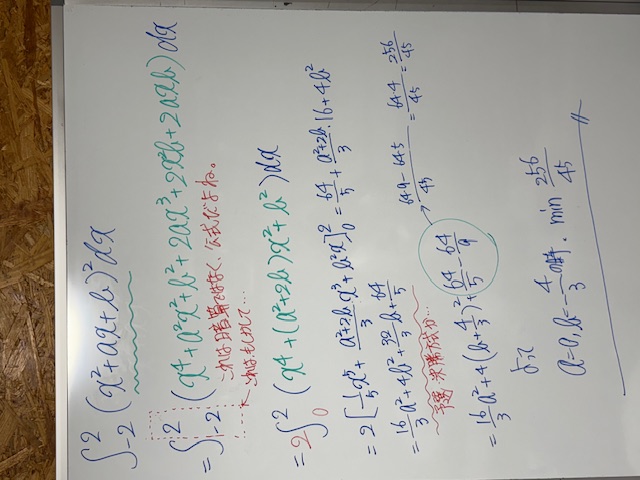 ∫_{-2}^{2} (x²+ax+b)² dx
=∫_{-2}^{2} (x⁴+a²x²+b²+2ax³+2x²b+2axb)dx
これは暗算ではなく、公式だよね。
これはもしかして...
=2∫_{0}^{2} (x⁴+(a²+2b)x²+b²)dx
=2[1/5 x⁵+(a²+2b)/3 x³+b²x]_{0}^{2} =64/5+(a²+2b)/3・16+4b²
=16/3 a²+4b²+32/3 b+64/5
平方完成か...
=16/3 a²+4(b+4/3)²+64/5-64/9
→(64・9-64・5)/45=64・4/45=256/45
よって
a=0, b=-4/3のとき. min 256/45